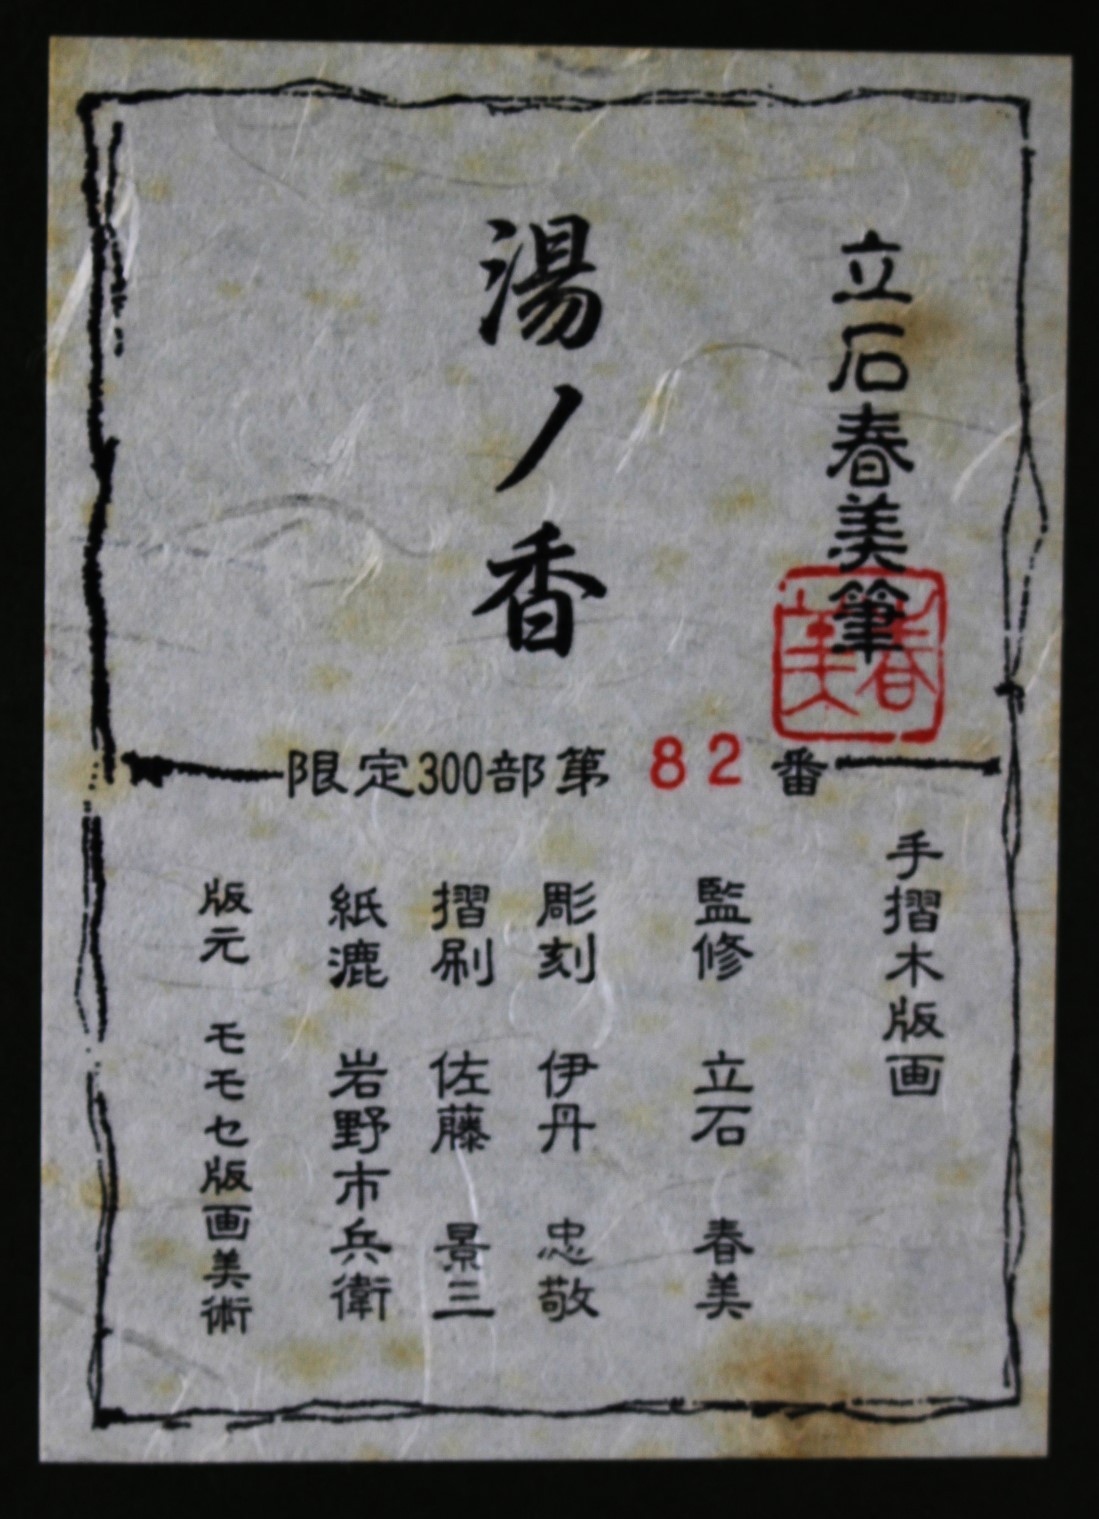 立石春美筆
春美
湯ノ香
限定300部第 82 番
手摺木版画
監修 立石 春美
彫刻 伊丹 忠敬
摺刷 佐藤 景三
紙漉 岩野市兵衛
版元 モモセ版画美術